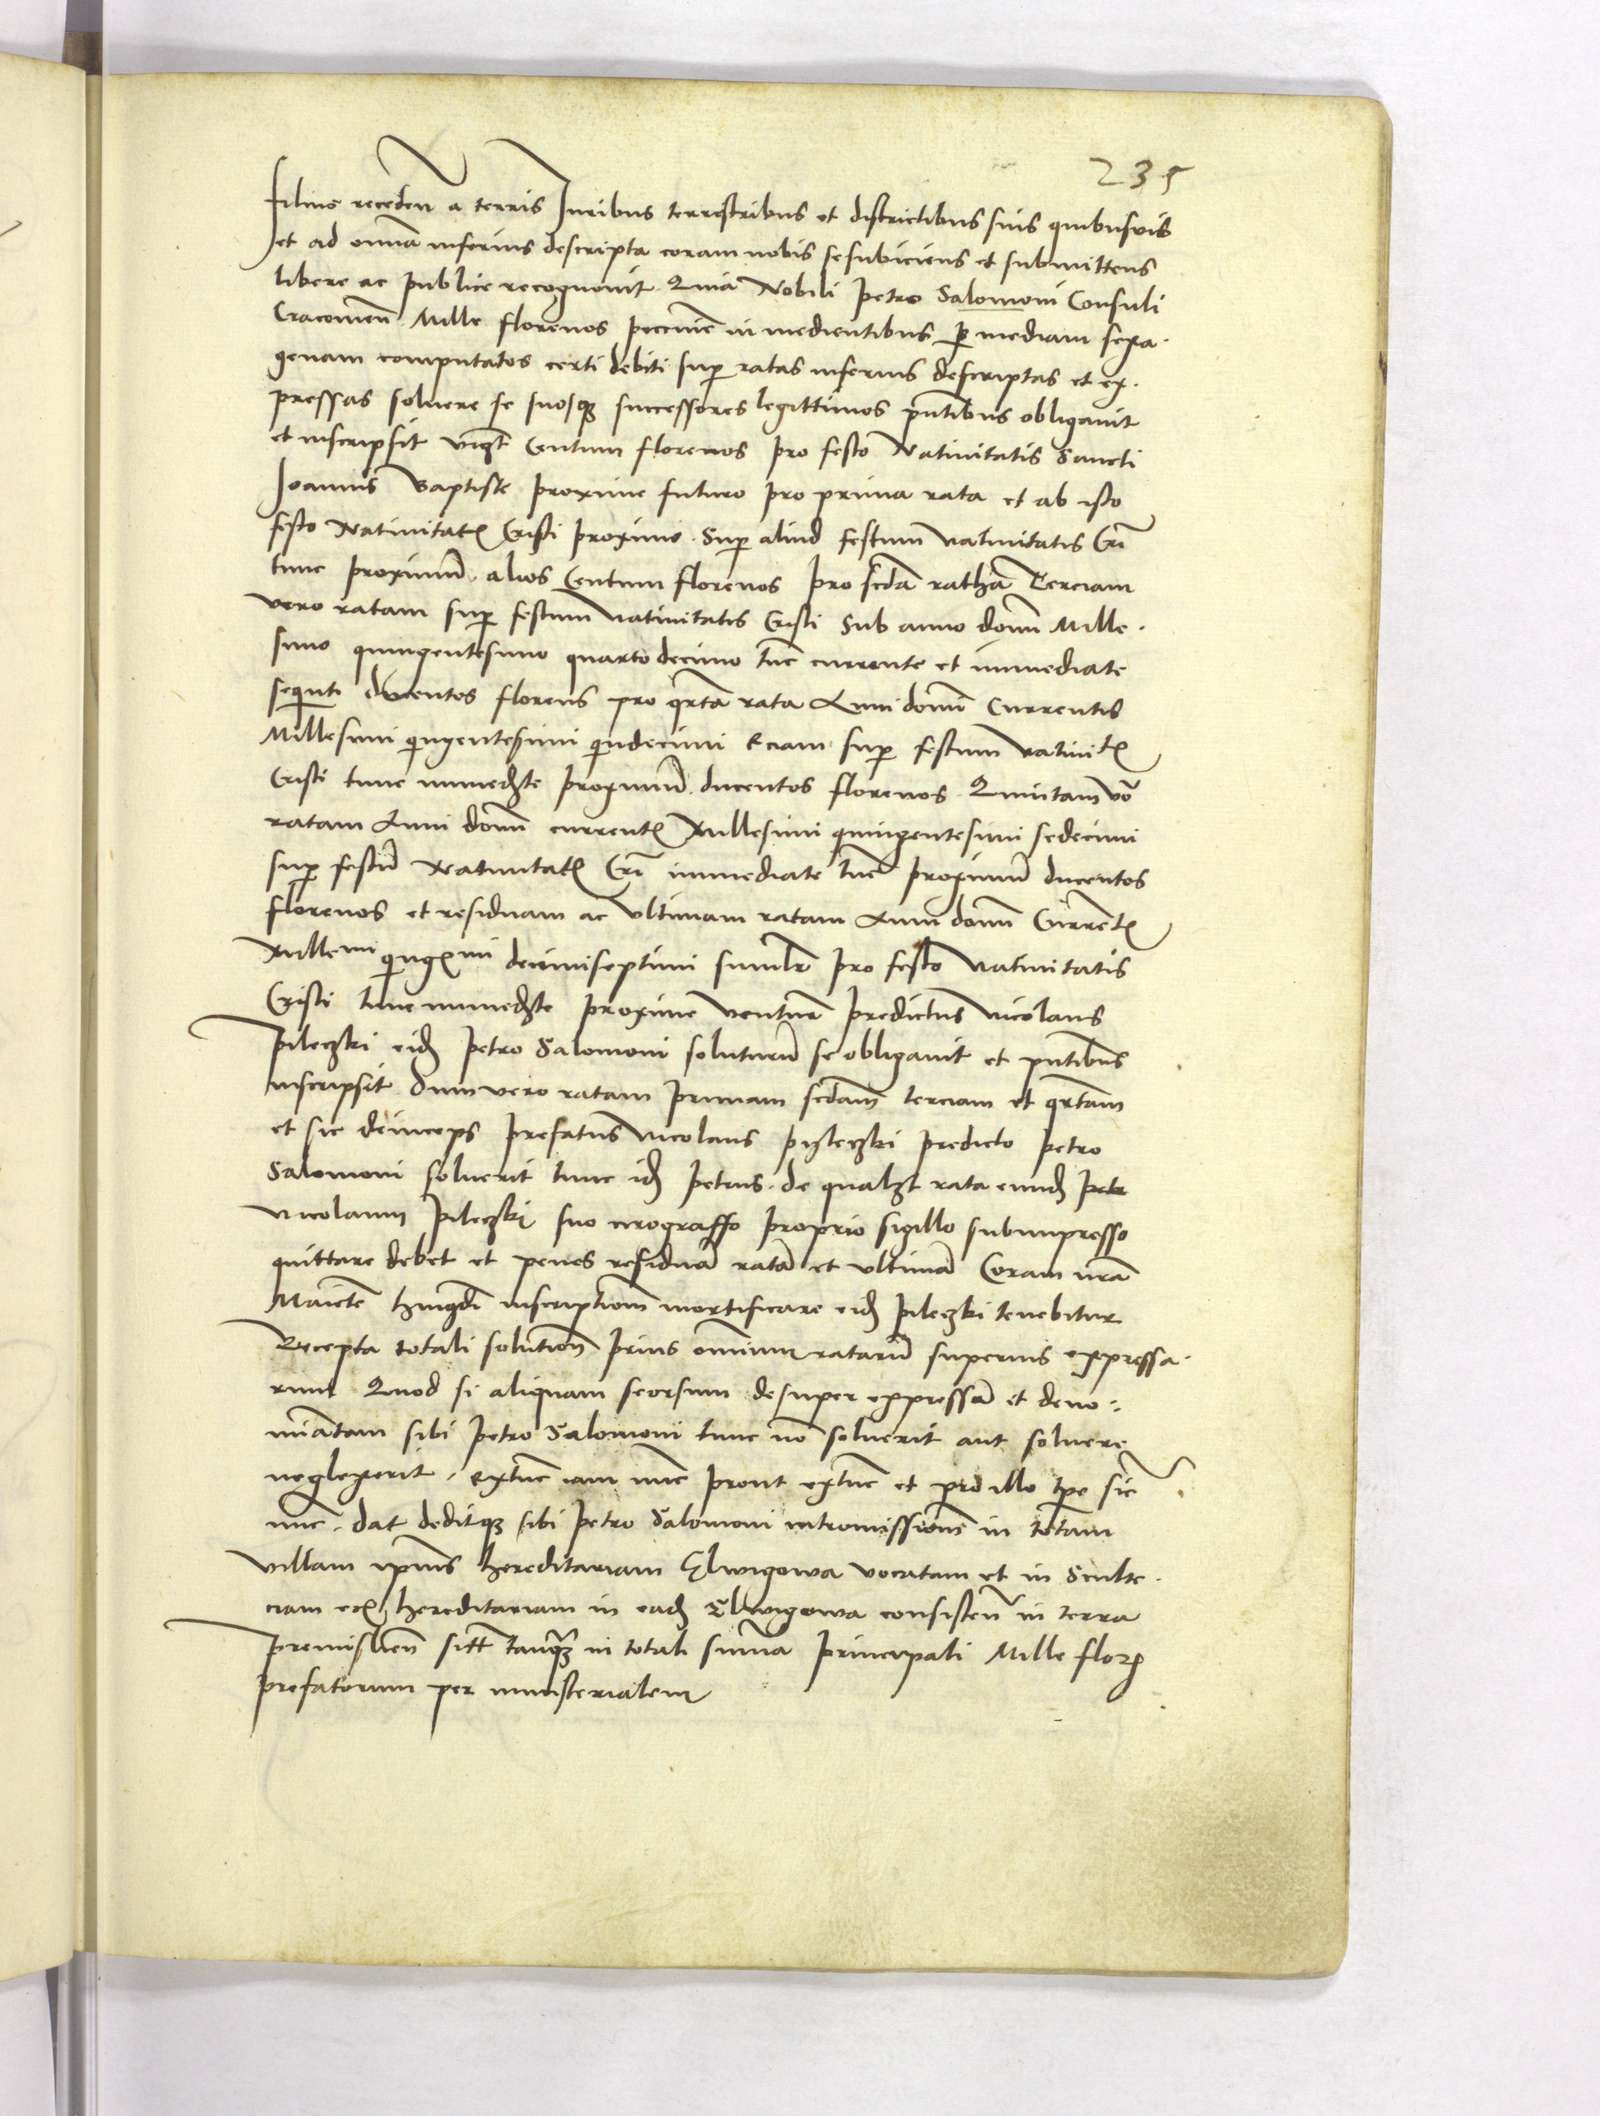 235
filius receden a terris Iuribus terrestribus et districtibus suis quibusvis
et ad omnia inferius descripta coram nobis se subiiciens et submittens
libere ac publice recognovit Quia Nobili Petro Salomoni Consuli
Cracovien Mille florenos peccunie in medientibus per mediam sexa
genam computatos certi debiti super ratas inferius descriptas et ex
pressas solvere se suosque successores legittimos pntibus obligavit
et inscripsit vigt Centum florenos pro festo Nativitatis Sancti
Ioannis Baptiste proxime futuro pro prima rata et ab isto
festo Nativitatis Cristi proximo super aliud festum nativitatis Cri
tunc proximum alios Centum florenos pro scda ratha Terciam
vero ratam super festum Nativitatis Cristi sub anno domi Mille
simo quingentesimo quarto decimo tunc currente et immediate
sequnti ducentos florenos pro qrta rata Anni domi currentis
Millesimi quingentesimi quindecimi eciam super festum nativitatis
Cristi tunc immediate proximum ducentos florenos Quintam vero
ratam Anni domi currentis Millesimi quingentesimi sedecimi
super festum Nativitatis Cri immediate tunc proximum ducentos
florenos et residuam ac ultimam ratam Anni domi Currentis
Millemi quingmi decimiseptimi similr pro festo nativitatis
Cristi tunc immediate proxime ventur predictus Nicolaus
Pileczki eidem Petro Salomoni soluturum se obligavit et pntibus
inscripsit dum vero ratam primam scdam terciam et qrtam
et sic deinceps prefatus Nicolaus Pyleczki predicto Petro
Salomoni solverit tunc idem Petrus de qualibet rata eundem
Nicolaum Pileczki suo cirograffo proprio sigillo subimpresso
quittare debet et penes residuam ratam et ultimam Coram nra
Maiestate inscriptionem mortificare eidem Pileczki tenebitur
Recepta totali solutione prius omnium ratarum superius expressa
rum Quod si aliquam seorsum desuper expressam et deno
minatam sibi Petro Salomoni tunc non solverit aut solvere
neglexerit extunc iam nunc prout extunc et pro illo tpe sic
nunc dat deditque sibi Petro Salomoni intromissionem in totam
villam ipius hereditariam Elwigowa vocatam et in Sculte
ciam hereditariam in eadem Elwigowa consisten in terra
Premislien sitt tanquam in totali summa principali Mille flor
prefatorum per ministerialem